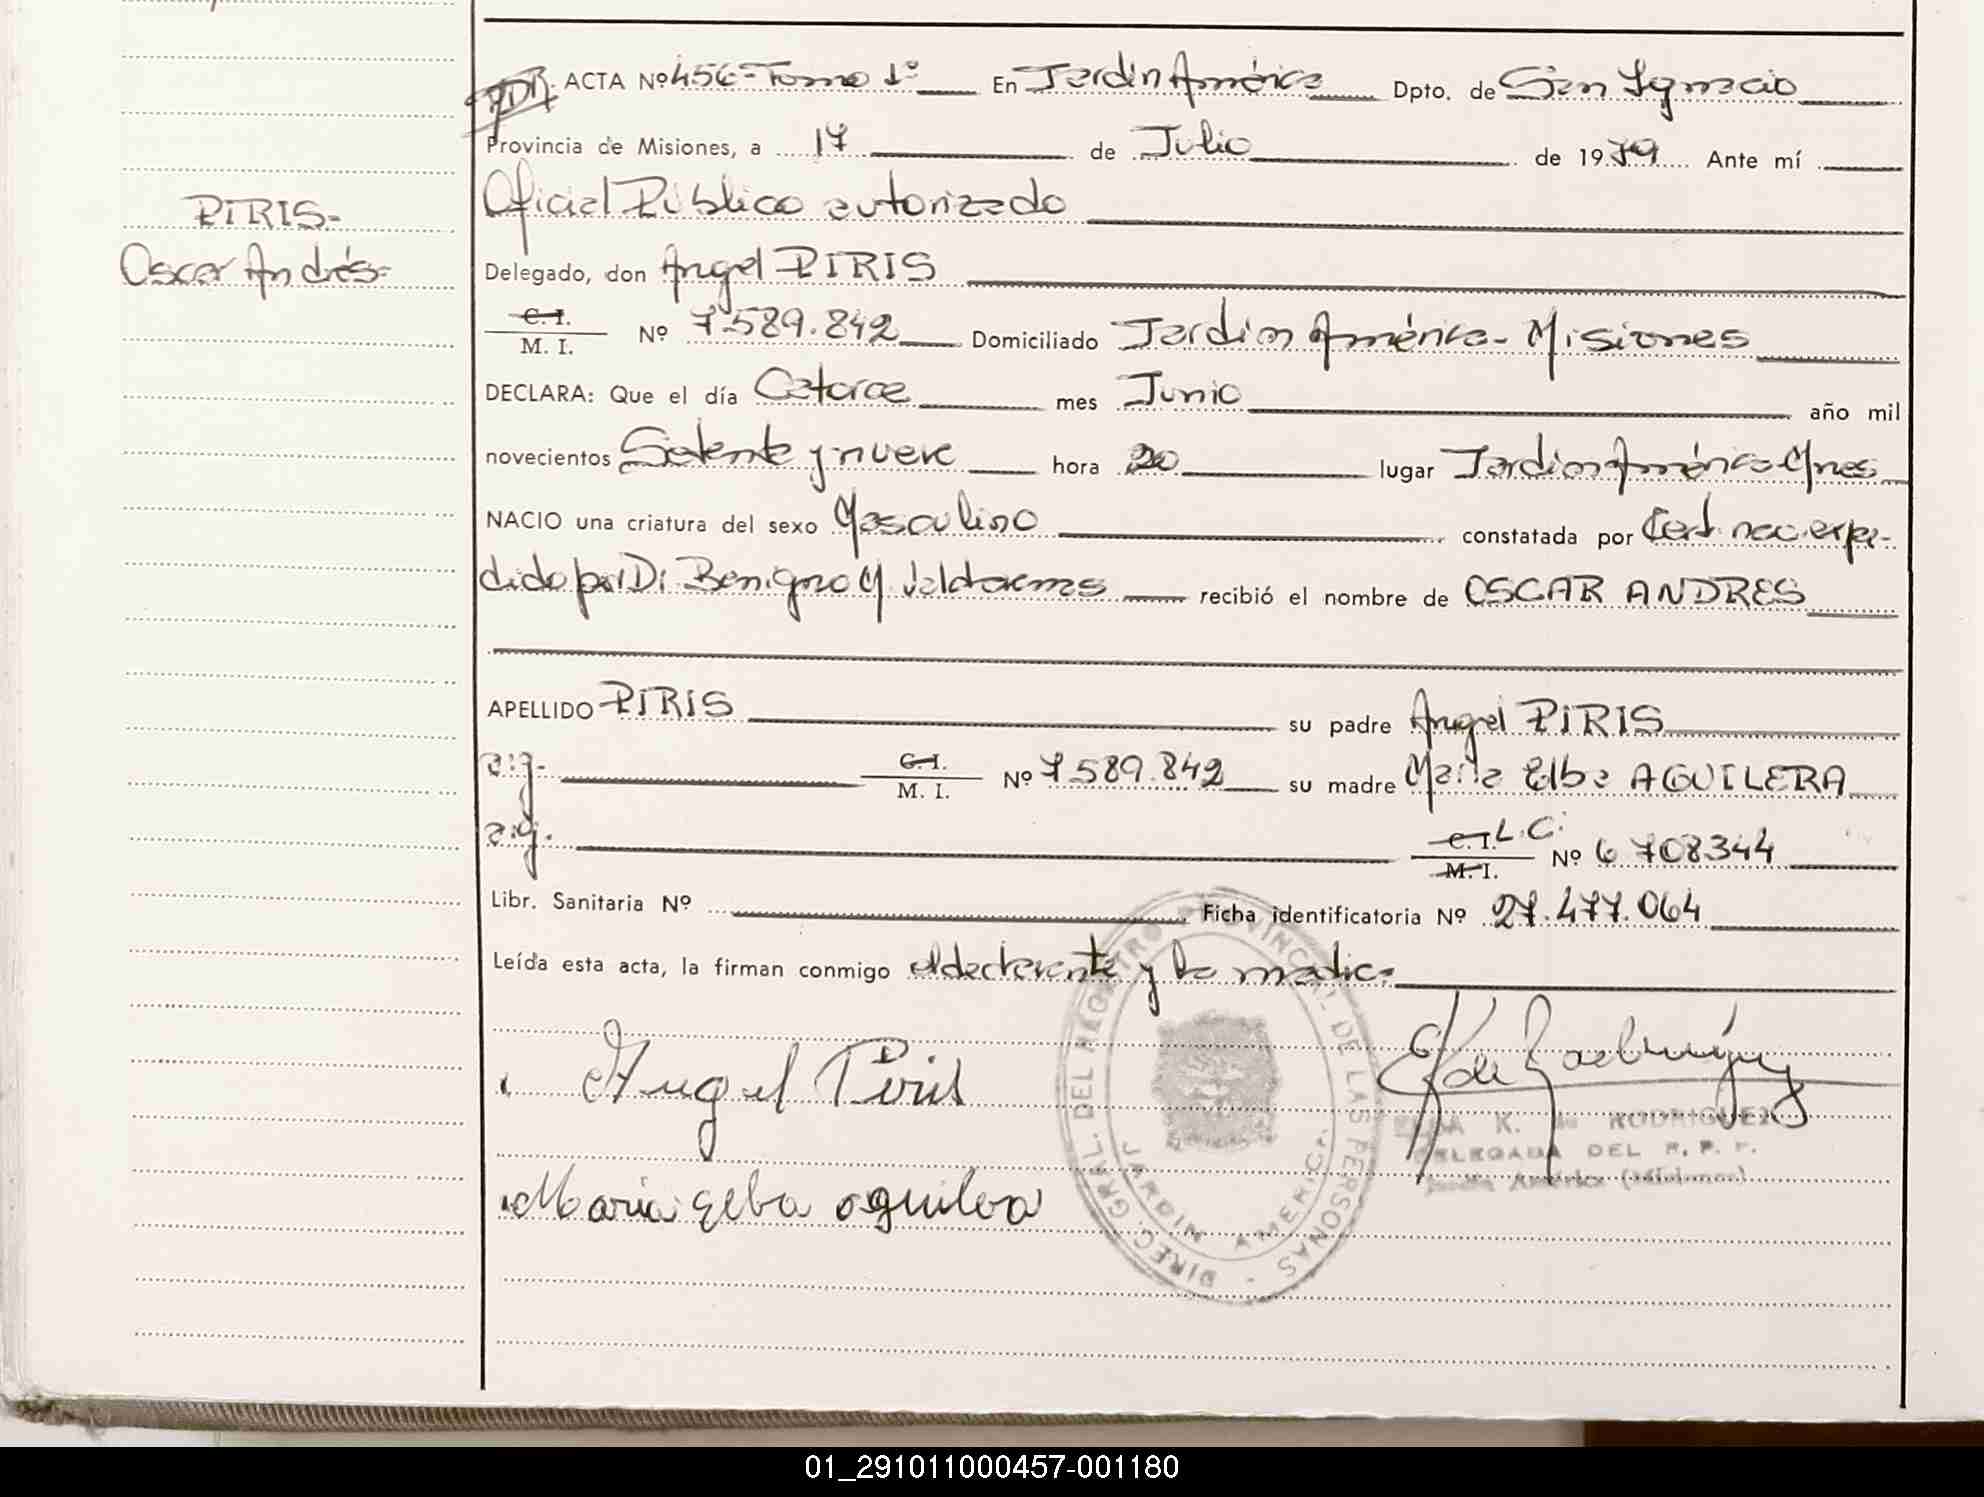 PIRIS-
Oscar Andrés-
ACTA Nº 456-Tomo 1º En Jardín América Dpto. de San Ignacio
Provincia de Misiones, a 17 de Julio de 1979 Ante mí
Oficial Público autorizado
Delegado, don Angel PIRIS
C. I. M. I. Nº 7.589.842 Domiciliado Jardín América- Misiones
DECLARA: Que el día Catorce mes Junio año mil
novecientos Setenta y nueve hora 20 lugar Jardín América-Mnes
NACIO una criatura del sexo Masculino constatada por Cert. nac. expe-
dido por Dr. Benigno M. recibió el nombre de OSCAR ANDRES
APELLIDO PIRIS su padre Angel PIRIS
a:g. C. I. M. I. Nº 7.589.842 su madre María Elba AGUILERA
a:g. C. I. L.C. M. I. Nº 6 708344
Libr. Sanitaria Nº Ficha identificatoria Nº 27.477.064
Leída esta acta, la firman conmigo el declarante y la madre-
Angel Piris
María Elba aguilera
DIREC. GRAL. DEL REGISTRO PROVINCIAL DE LAS PERSONAS -
JARDIN AMERICA
K. de RODRIGUEZ
DELEGADA DEL R. P. P.
Jardín América (Misiones)
01_291011000457-001180